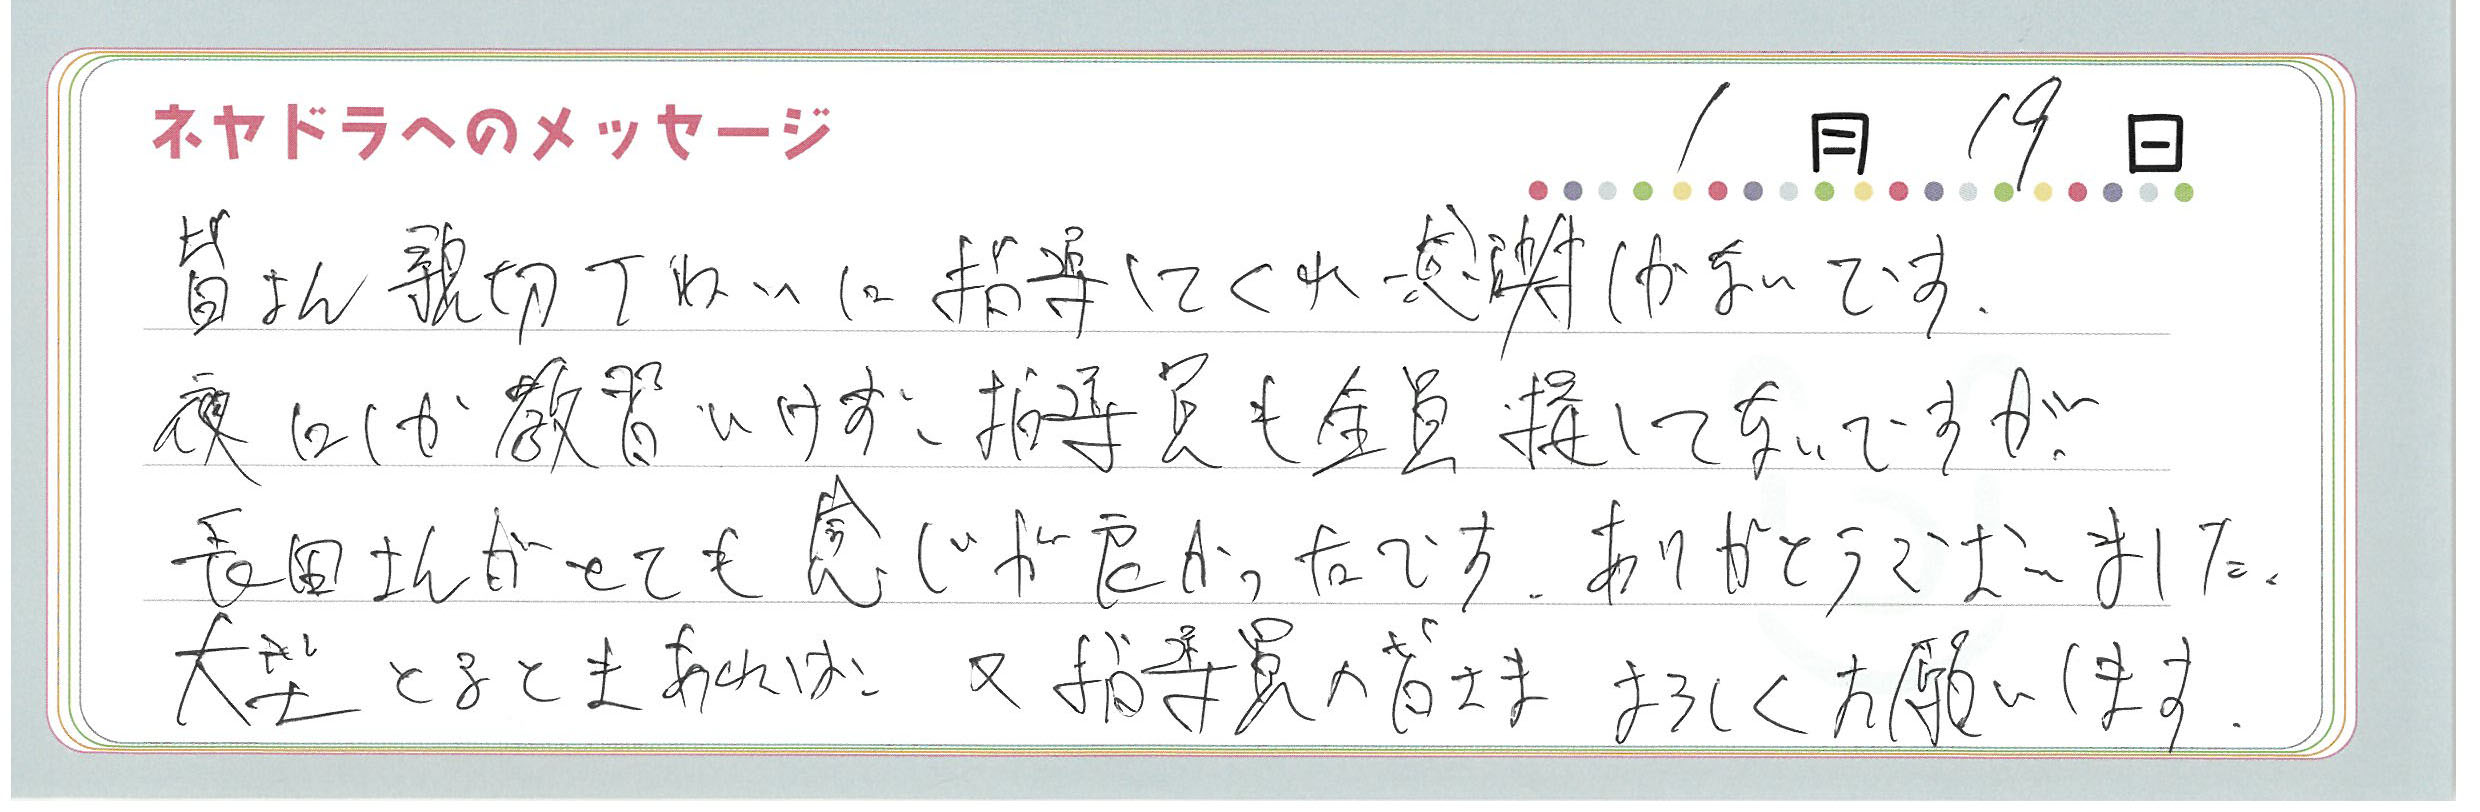 ネヤドラへのメッセージ
1月19日
皆さん親切ていねいに指導してくれ感謝しかないです.
夜にしか教習いけず、指導員も全員接してないですが、
長田さんがとても感じが良かったです.ありがとうございました.
大型とるときあれば、又指導員の皆さまよろしくお願いします.